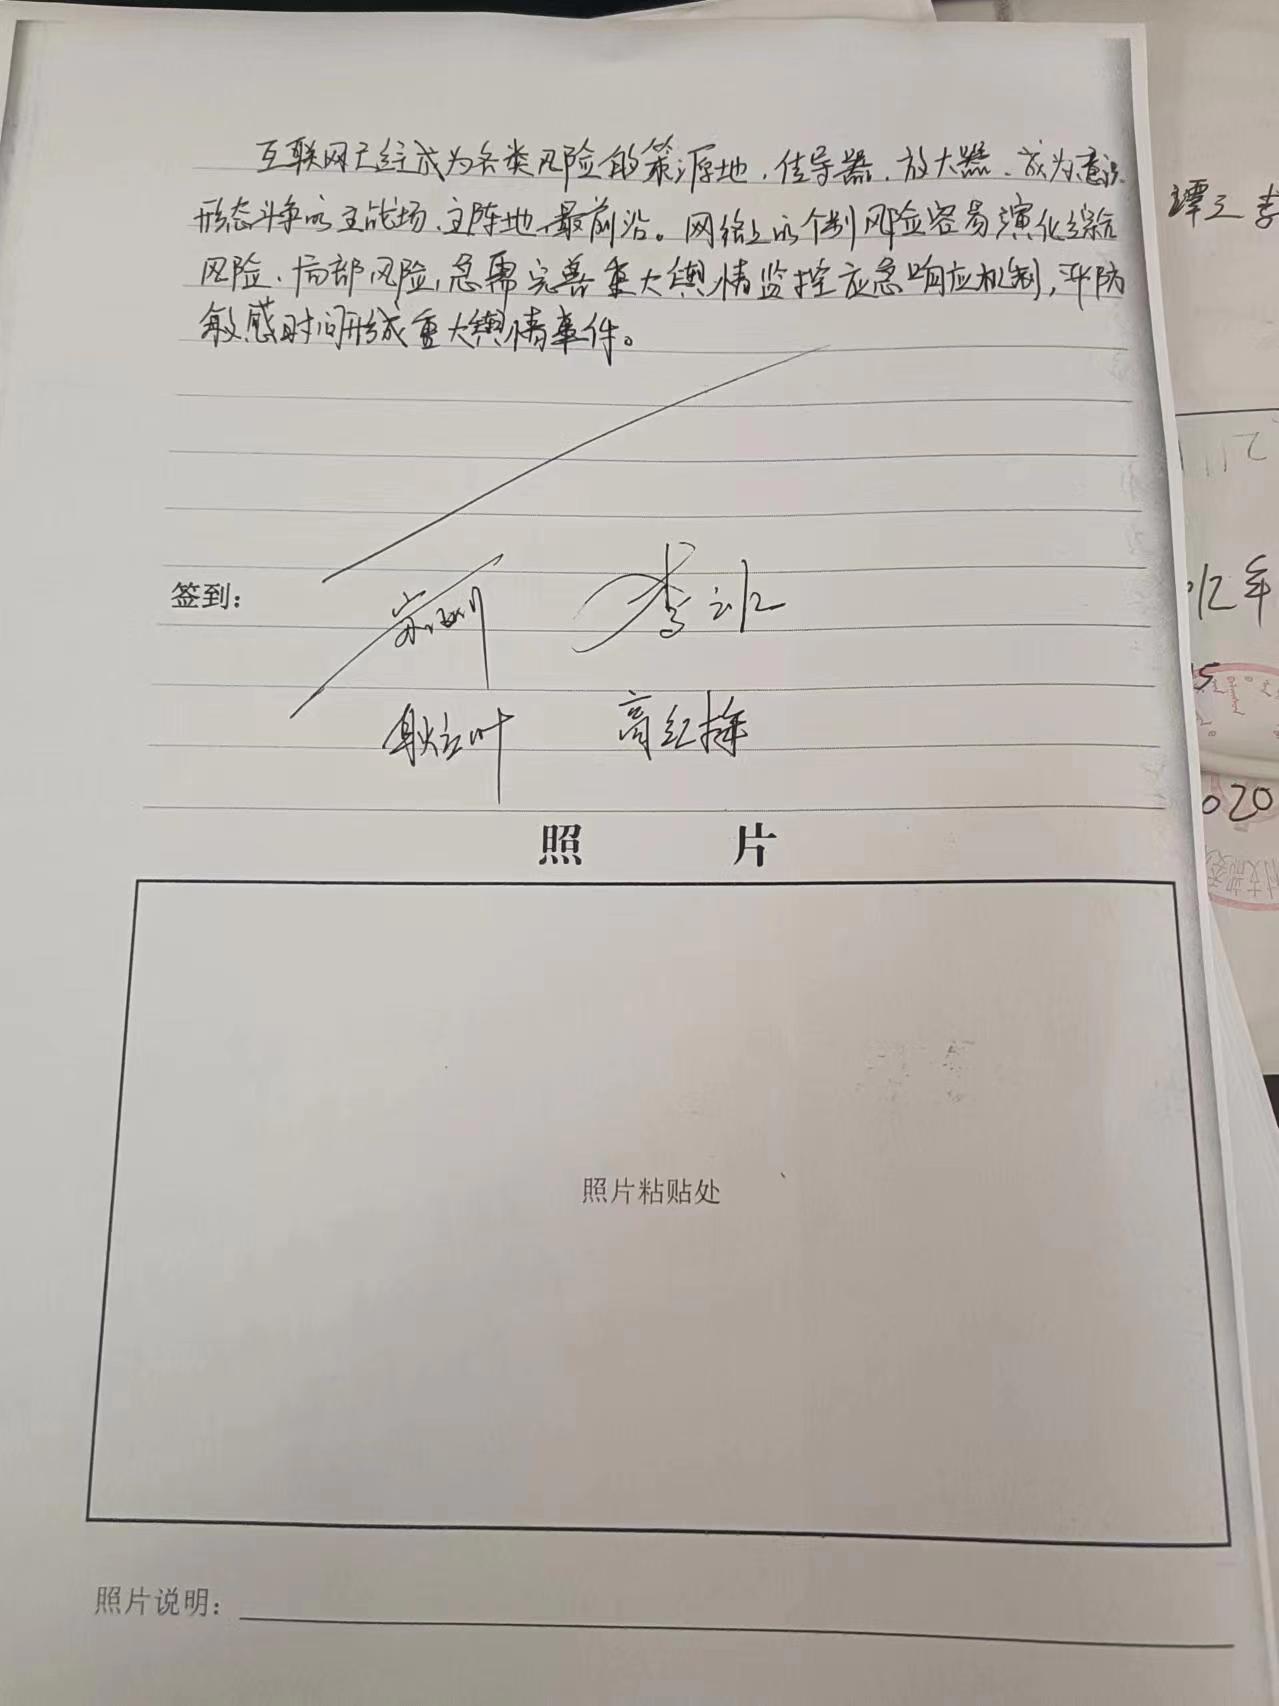 互联网已经成为各类风险的策源地、传导器、放大器、成为意识
形态斗争的主战场、主阵地、最前沿。网络上的个别风险容易演化综合
风险、局部风险,急需完善重大舆情监控应急响应机制,严防
敏感时间形成重大舆情事件。
签到:
高红梅
照 片
照片粘贴处
照片说明:
年
020